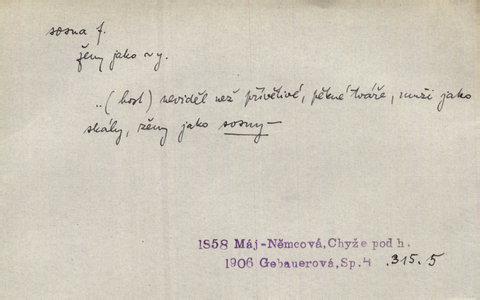 sosna f.
ženy jako ~y.
..(host) neviděl než přívětivé, pěkné tváře, muži jako
skály, ženy jako sosny-
1858 Máj-Němcová, Chyže pod h.
1906 Gebauerová, Sp.4 .315.5